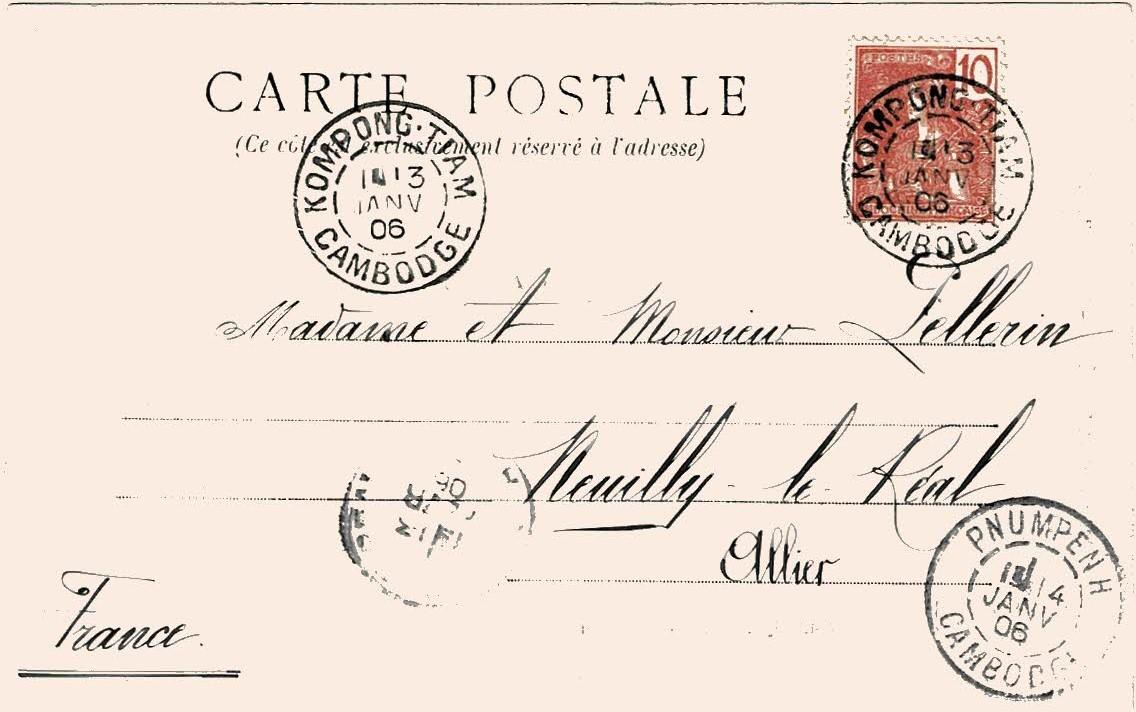 CARTE POSTALE
(Ce côté exclusivement réservé à l'adresse)
POSTES 10
KOMPONG-TIAM
13
JANV
06
CAMBODGE
KOMPONG-TIAM
3
JANV
06
CAMBODGE
Madame et Monsieur Pellerin
Neuilly-le-Réal
Allier
France.
06
PNUMPENH
14
JANV
06
CAMBODGE